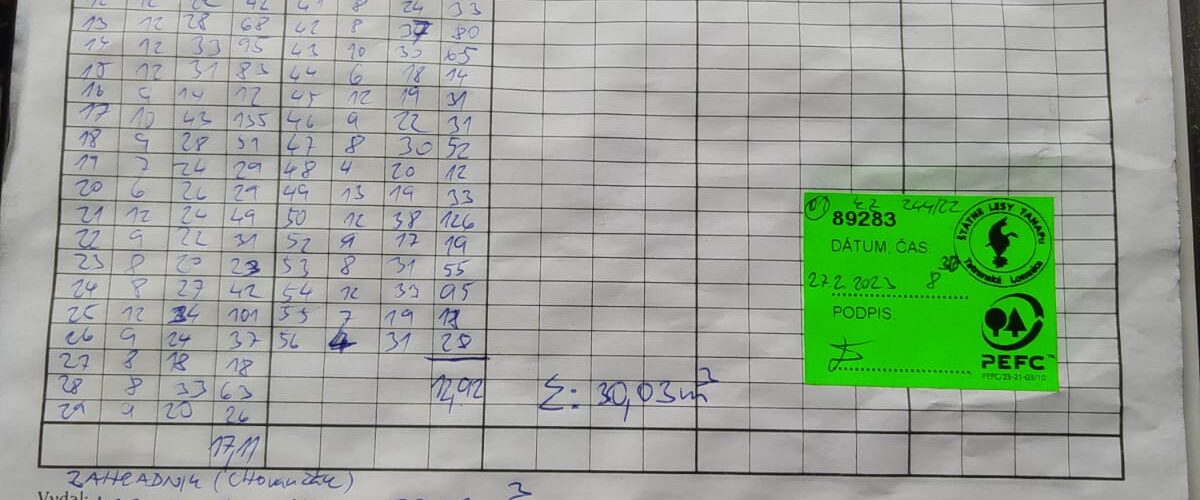 12 12 22 42 41 8 24 33
13 12 28 68 42 8 37 80
14 12 33 95 43 10 30 65
15 12 31 83 44 6 18 14
16 9 14 12 45 12 19 31
17 10 43 135 46 9 22 31
18 9 28 51 47 8 30 52
19 7 24 29 48 4 20 12
20 6 26 29 49 13 19 33
21 12 24 49 50 12 38 126
22 9 22 31 52 9 17 19
23 8 20 23 53 8 31 55
24 8 27 42 54 12 33 95
25 12 34 101 55 7 19 18
26 9 24 37 56 4 31 28
27 8 18 18
28 8 33 63 12,92
29 9 20 26
17,11
Σ: 30,03 m³
ZAHRADNIK (CHOVANČÁK)
Vydal:
01 LZ 244/22
89283
DÁTUM, ČAS:
27.2.2023 8 30
PODPIS:
ŠTÁTNE LESY TANAPU
Tatranská Lomnica
PEFC™
PEFC/23-21-03/10